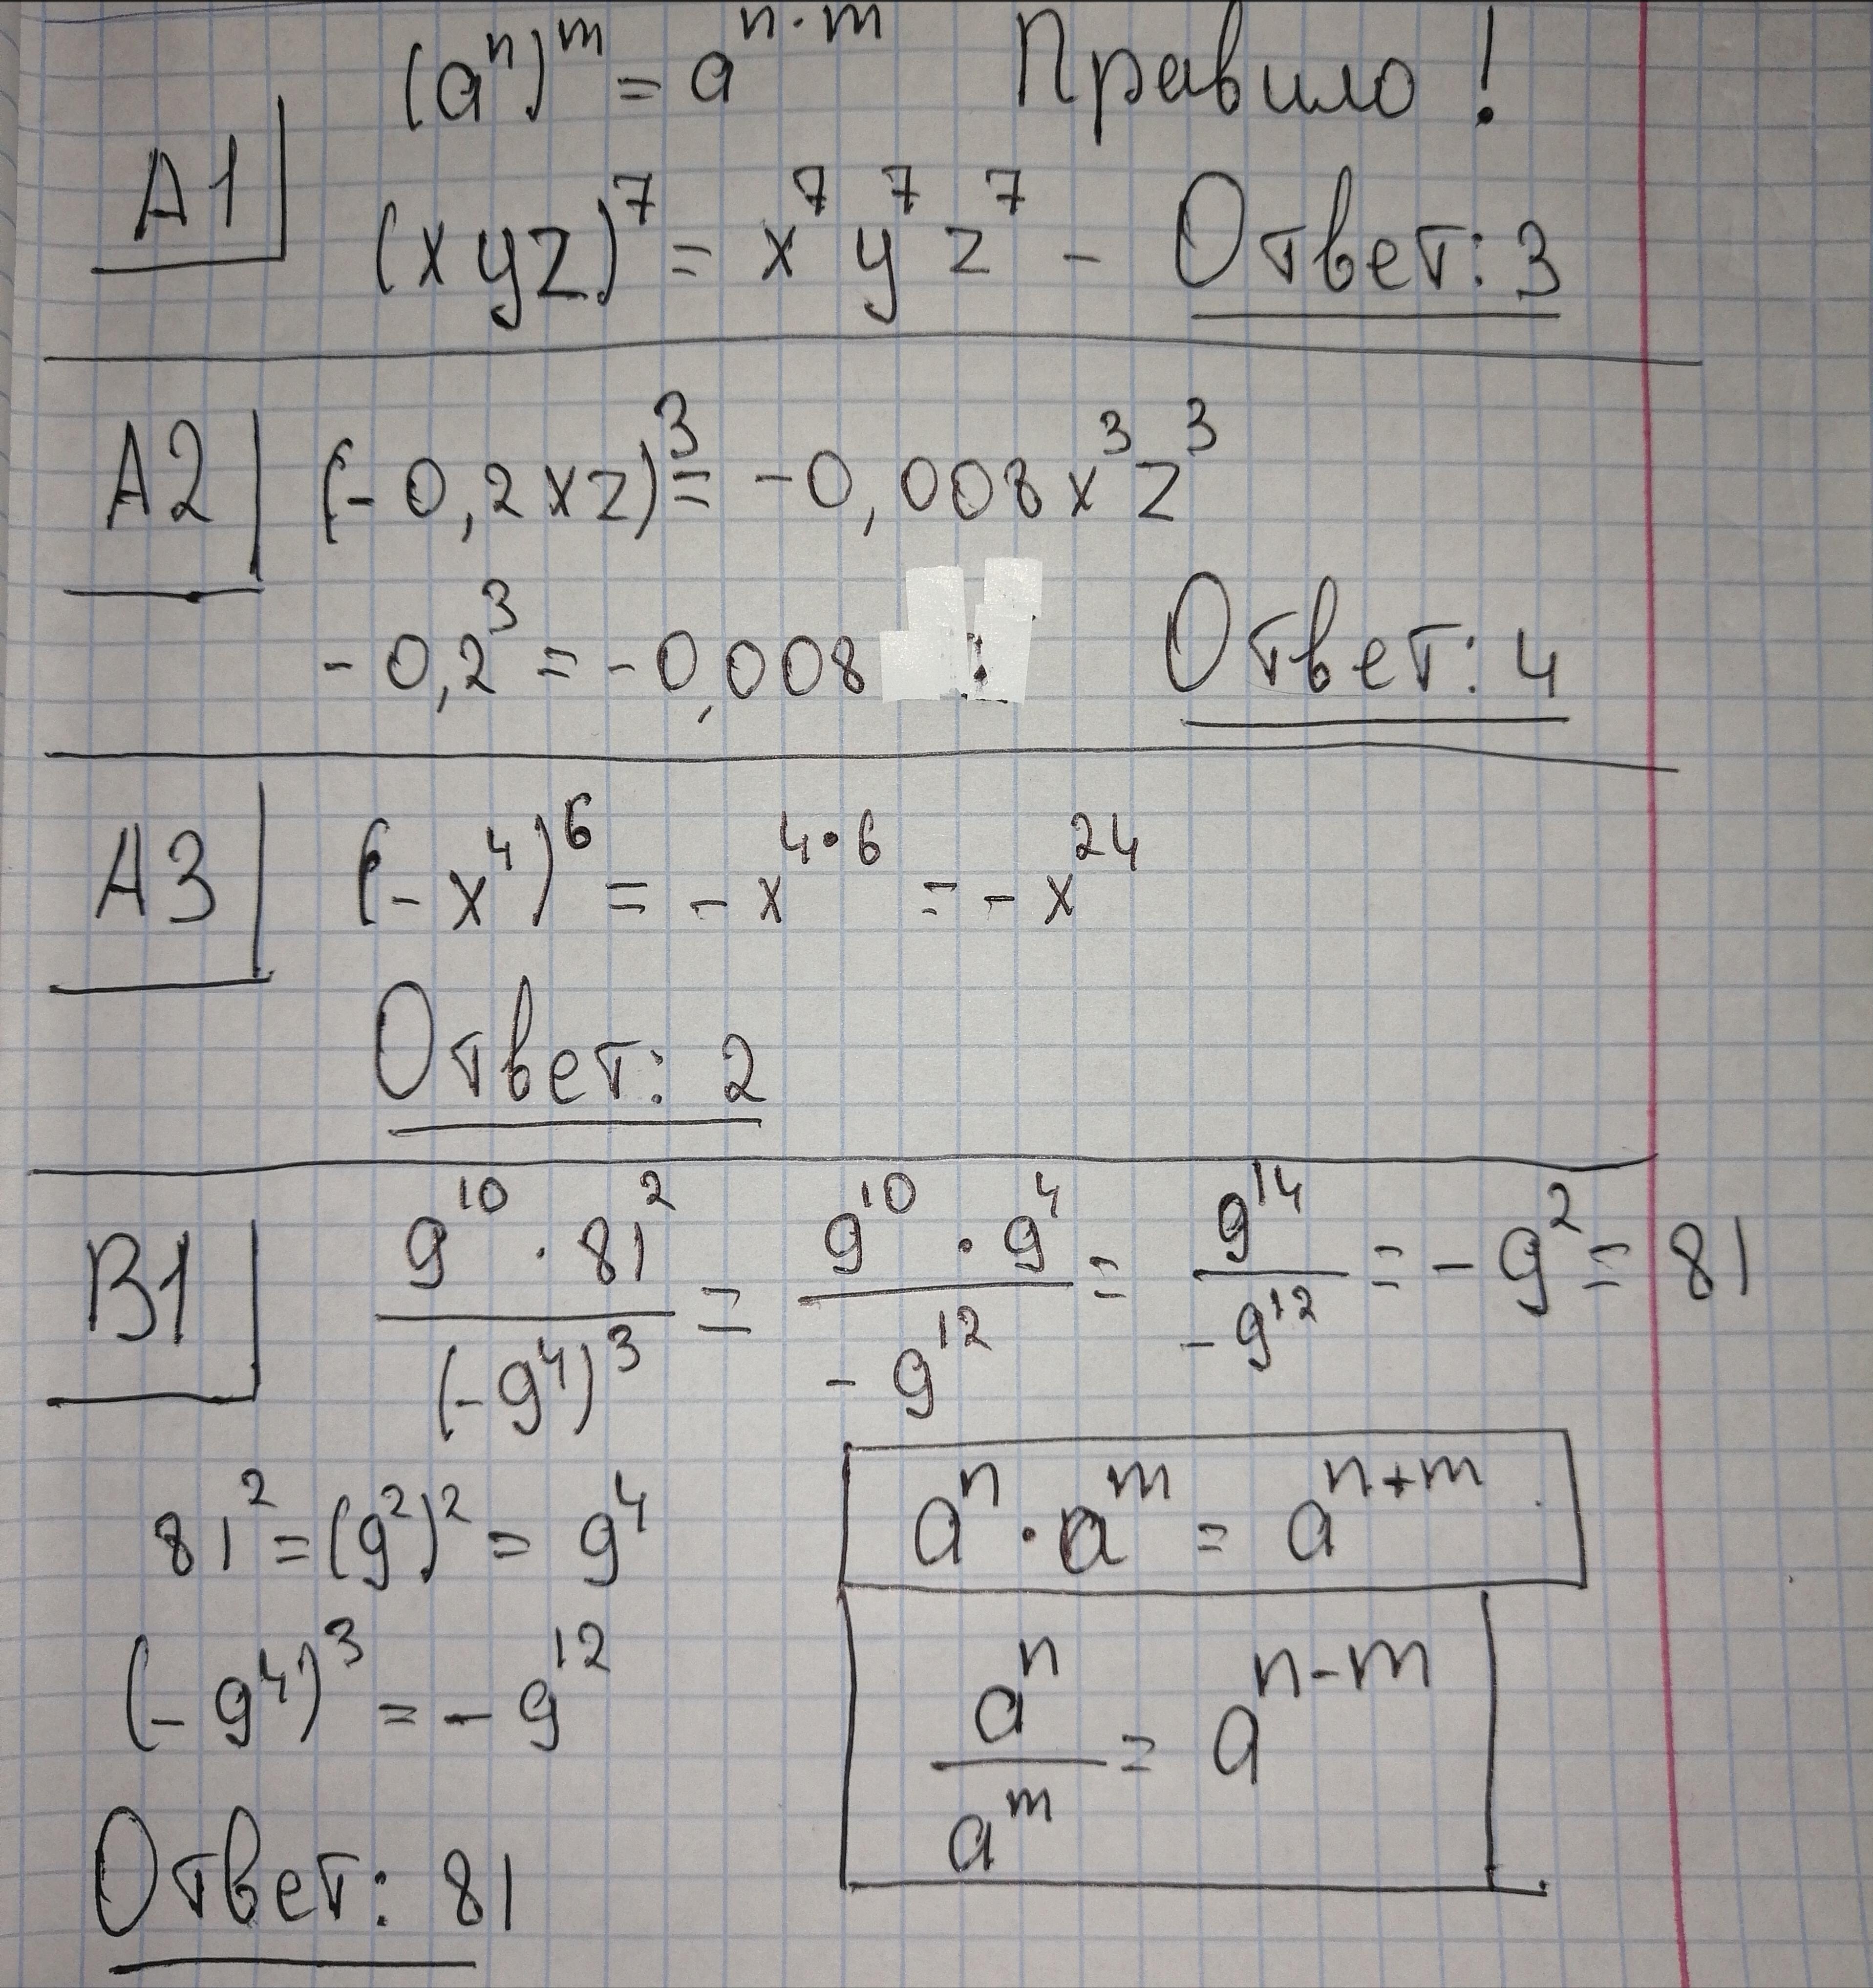 (aⁿ)ᵐ = aⁿ·ᵐ Правило!
A1 (xyz)⁷ = x⁷y⁷z⁷ - Ответ: 3
A2 (-0,2xz)³ = -0,008x³z³
-0,2³ = -0,008 Ответ: 4
A3 (-x⁴)⁶ = -x⁴·⁶ = -x²⁴
Ответ: 2
B1 \frac{9¹⁰ · 81²}{(-9⁴)³} = \frac{9¹⁰ · 9⁴}{-9¹²} = \frac{9¹⁴}{-9¹²} = -9² = 81
81² = (9²)² = 9⁴
aⁿ · aᵐ = aⁿ⁺ᵐ
(-9⁴)³ = -9¹²
\frac{aⁿ}{aᵐ} = aⁿ⁻ᵐ
Ответ: 81